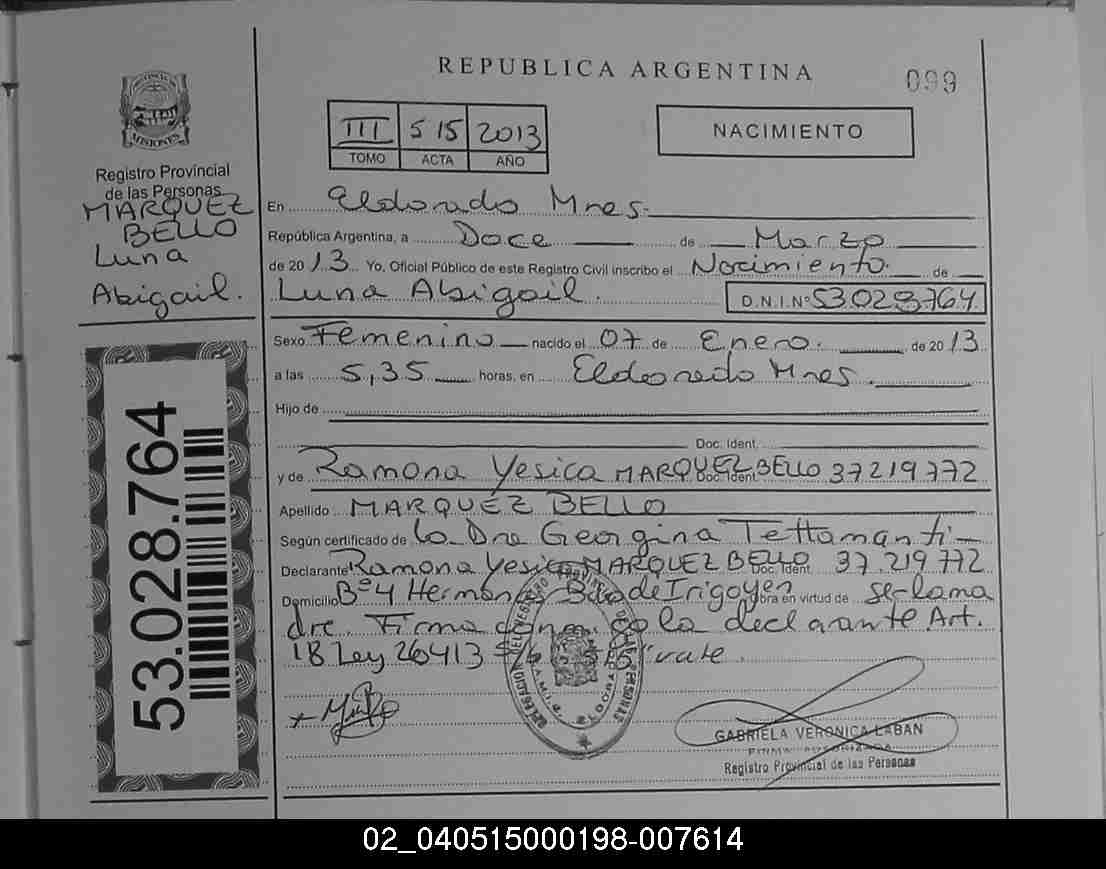 REPUBLICA ARGENTINA
099
PROVINCIA DE
MISIONES
Registro Provincial
de las Personas
MARQUEZ
BELLO
Luna
Abigail.
53.028.764
III 515 2013
TOMO ACTA AÑO
NACIMIENTO
En Eldorado Mnes.
República Argentina, a Doce de Marzo
de 2013 Yo, Oficial Público de este Registro Civil inscribo el Nacimiento de
Luna Abigail. D.N.I.Nº 53.028.764
Sexo Femenino nacido el 07 de Enero. de 2013
a las 5,35 horas, en Eldorado Mnes.
Hijo de
Doc. Ident.
y de Ramona Yesica MARQUEZ BELLO Doc. Ident. 37219772
Apellido MARQUEZ BELLO
Según certificado de la Dra Georgina Tettamanti
Declarante Ramona Yesica MARQUEZ BELLO Doc. Ident. 37.219.772
Domicilio Bº 4 Hermanas Bdo de Irigoyen Obra en virtud de se la ma
dre. Firma la declarante Art.
18 Ley 26413 vale.
DELEGACION REGISTRO PROVINCIAL DE LAS PERSONAS
ELDORADO
GABRIELA VERONICA LABAN
FIRMA AUTORIZADA
Registro Provincial de las Personas
02_040515000198-007614